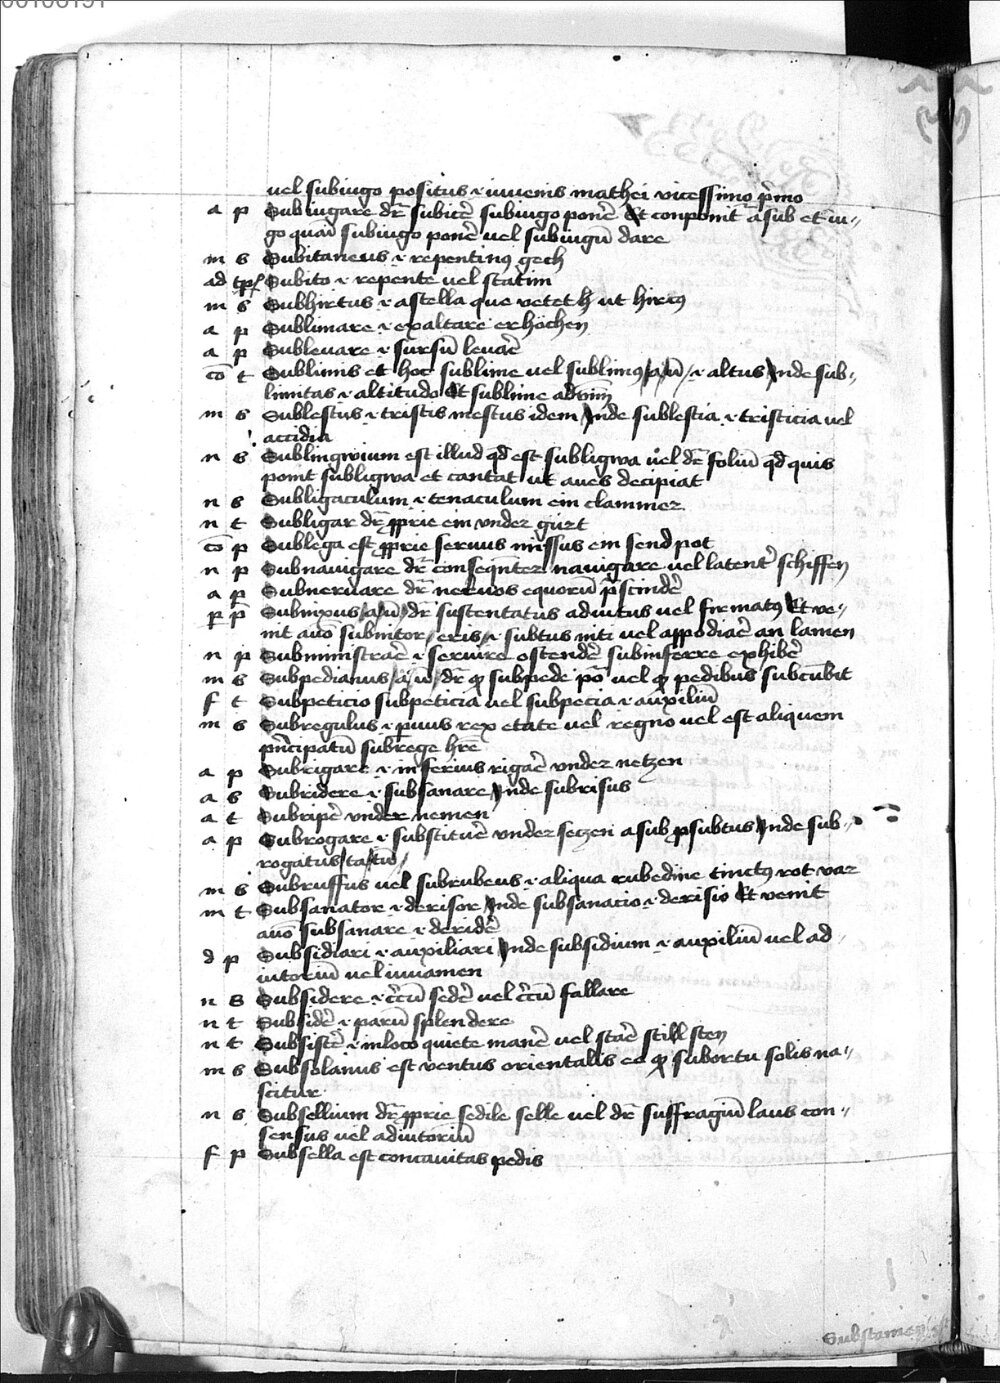 00100191
vel subiugo positus ⁊ iuuenis mathei vicessimo p̄mo
a p Subiugare dr̄ subicē subiugo ponē Et conponit̄ a sub et iu-
go quasi subiugo ponē vel subiugū dare
m s Subitaneus ⁊ repentinus gech
ad tp̄ Subito ⁊ repente vel statim
m s Subhirtus ⁊ astella que ut hircus
a p Sublimare ⁊ exaltare erhöchen
a p Subleuare ⁊ sursū leuare
cō t Sublimis et hoc sublime vel sublimus/a/ū/ ⁊ altus Inde sub-
limitas ⁊ altitudo Et sublime
m s Sublestus ⁊ tristis mestus idem Inde sublestia ⁊ tristicia vel
accidia
n s Sublingwium est illud qd est subligwa vel dr̄ foliū qd quis
ponit subligwa et cantat ut aues decipiat
n s Subligaculum ⁊ tenaculum ein clammer
n t Subligar dr̄ pprie ein vnder gürt
cō p Sublega est pprie seruus missus ein send pot
n p Subnauigare dr̄ nauigare vel latent̄ schiffen
a p Subneruare dr̄ neruos equorū p̄scindē
p p̄ Subnixus/a/ū/ dr̄ sustentatus adiutus vel firmatus Et ve-
nit auō subnitor/eris/ ⁊ subtus niti vel appodiaē an lamen
n p Subministraē ⁊ seruire ostendē subinferre exhibē
m s Subpedianus/a/ū/ dr̄ q subpede pō vel q pedibus subcūbit
f t Subpeticio subpeticia vel subpecia ⁊ auxiliū
m s Subregulus ⁊ puus rex etate vel regno vel est aliquem
pn̄cipatū subrege hr̄e
a p Subrigare ⁊ inferius rigaē vnder netzen
a s Subridere ⁊ subsanare Inde subrisus
a t Subripē vnder nemen
a p Subrogare ⁊ substituē vnder seczen a sub p subtus Inde sub-
rogatus/ta/tū/
m s Subruffus vel subrubeus ⁊ aliqua rubedine tinctus rot var
m t Subsanator ⁊ derisor Inde subsanacio ⁊ derisio Et venit
auō subsanare ⁊ deridē
d p Subsidiari ⁊ auxiliari Inde subsidium ⁊ auxiliū vel ad
iutoriū vel iuuamen
n s Subsidere ⁊ sedē vel fallare
n t Subsidē ⁊ parū splendere
n t Subsistē ⁊ in loco quiete manē vel staē still sten
m s Subsolanus est ventus orientalis eo q subortu solis na-
scitur
n s Subsellium dr̄ pprie sedile selle vel dr̄ suffragiū laus con-
sensus vel adiutoriū
f p Subsella est concauitas pedis
Substamen